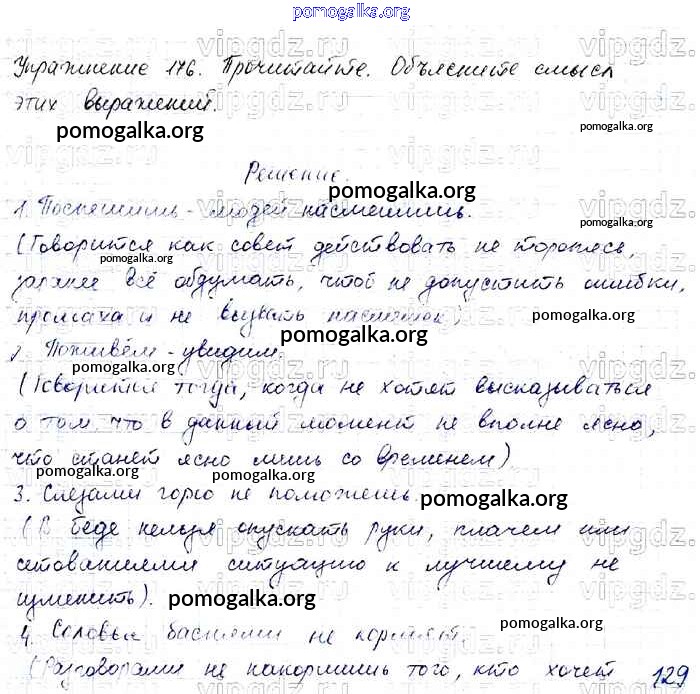 pomogalka.org
Упражнение 176. Прочитайте. Объясните смысл
этих выражений.
pomogalka.org
pomogalka.org
Решение.
pomogalka.org
1. Поспешишь - людей насмешишь.
(Говорится как совет действовать не торопясь,
pomogalka.org
заранее всё обдумать, чтоб не допустить ошибки,
промаха и не вызвать насмешек)
pomogalka.org
pomogalka.org
2. Поживём - увидим.
pomogalka.org
(Говорится тогда, когда не хотят высказываться
о том что в данный момент не вполне ясно,
что станет ясно лишь со временем)
pomogalka.org
3. Слезами горю не поможешь.
pomogalka.org
(В беде нельзя опускать руки, плачем или
сетованиями ситуацию к лучшему не
изменить).
pomogalka.org
pomogalka.org
4. Соловья баснями не кормят.
(Разговорами не накормишь того, кто хочет
129
vipgdz.ru